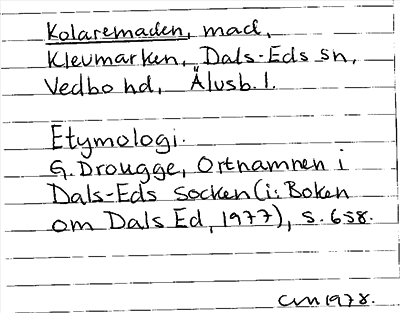 Kolaremaden, mad,
Klevmarken, Dals-Eds sn,
Vedbo hd, Älvsb. l.
Etymologi.
G. Drougge, Ortnamnen i
Dals-Eds socken (i: Boken
om Dals Ed, 1977), s. 658.
CM 1978.